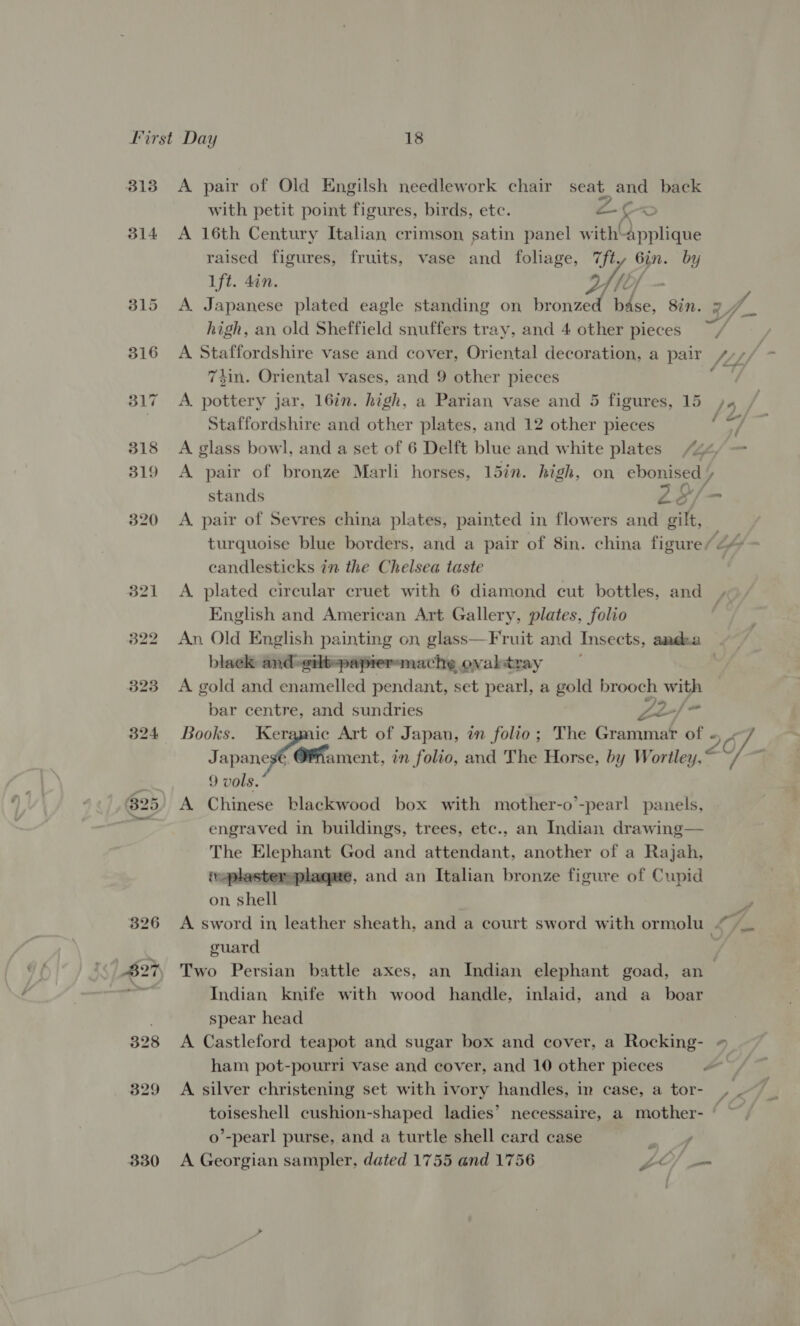 First Day 18
313 A pair of Old Engilsh needlework chair seat and back
with petit point figures, birds, etc.
314 A 16th Century Italian crimson satin panel with applique
raised figures, fruits, vase and foliage, 7ft, 6in. by
1ft. 4in.
315 A Japanese plated eagle standing on bronzed base, 8in.
high, an old Sheffield snuffers tray, and 4 other pieces
316 A Staffordshire vase and cover, Oriental decoration, a pair
7½in. Oriental vases, and 9 other pieces
317 A pottery jar, 16in. high, a Parian vase and 5 figures, 15
Staffordshire and other plates, and 12 other pieces
318 A glass bowl, and a set of 6 Delft blue and white plates
319 A pair of bronze Marli horses, 15in. high, on ebonised
stands 28/-
320 A pair of Sevres china plates, painted in flowers and gilt,
turquoise blue borders, and a pair of 8in. china figure
candlesticks in the Chelsea taste
321 A plated circular cruet with 6 diamond cut bottles, and
English and American Art Gallery, plates, folio
322 An Old English painting on glass—Fruit and Insects, and a
black and gilt papier mache oval tray
323 A gold and enamelled pendant, set pearl, a gold brooch with
bar centre, and sundries 22/-
324 Books. Keramic Art of Japan, in folio; The Grammar of
Japanese Ornament, in folio, and The Horse, by Wortley,
9 vols.
325 A Chinese blackwood box with mother-o'-pearl panels,
engraved in buildings, trees, etc., an Indian drawing—
The Elephant God and attendant, another of a Rajah,
plaster plaque, and an Italian bronze figure of Cupid
on shell
326 A sword in leather sheath, and a court sword with ormolu
guard
327 Two Persian battle axes, an Indian elephant goad, an
Indian knife with wood handle, inlaid, and a boar
spear head
328 A Castleford teapot and sugar box and cover, a Rocking-
ham pot-pourri vase and cover, and 10 other pieces
329 A silver christening set with ivory handles, in case, a tor-
toiseshell cushion-shaped ladies' necessaire, a mother-
o'-pearl purse, and a turtle shell card case
330 A Georgian sampler, dated 1755 and 1756